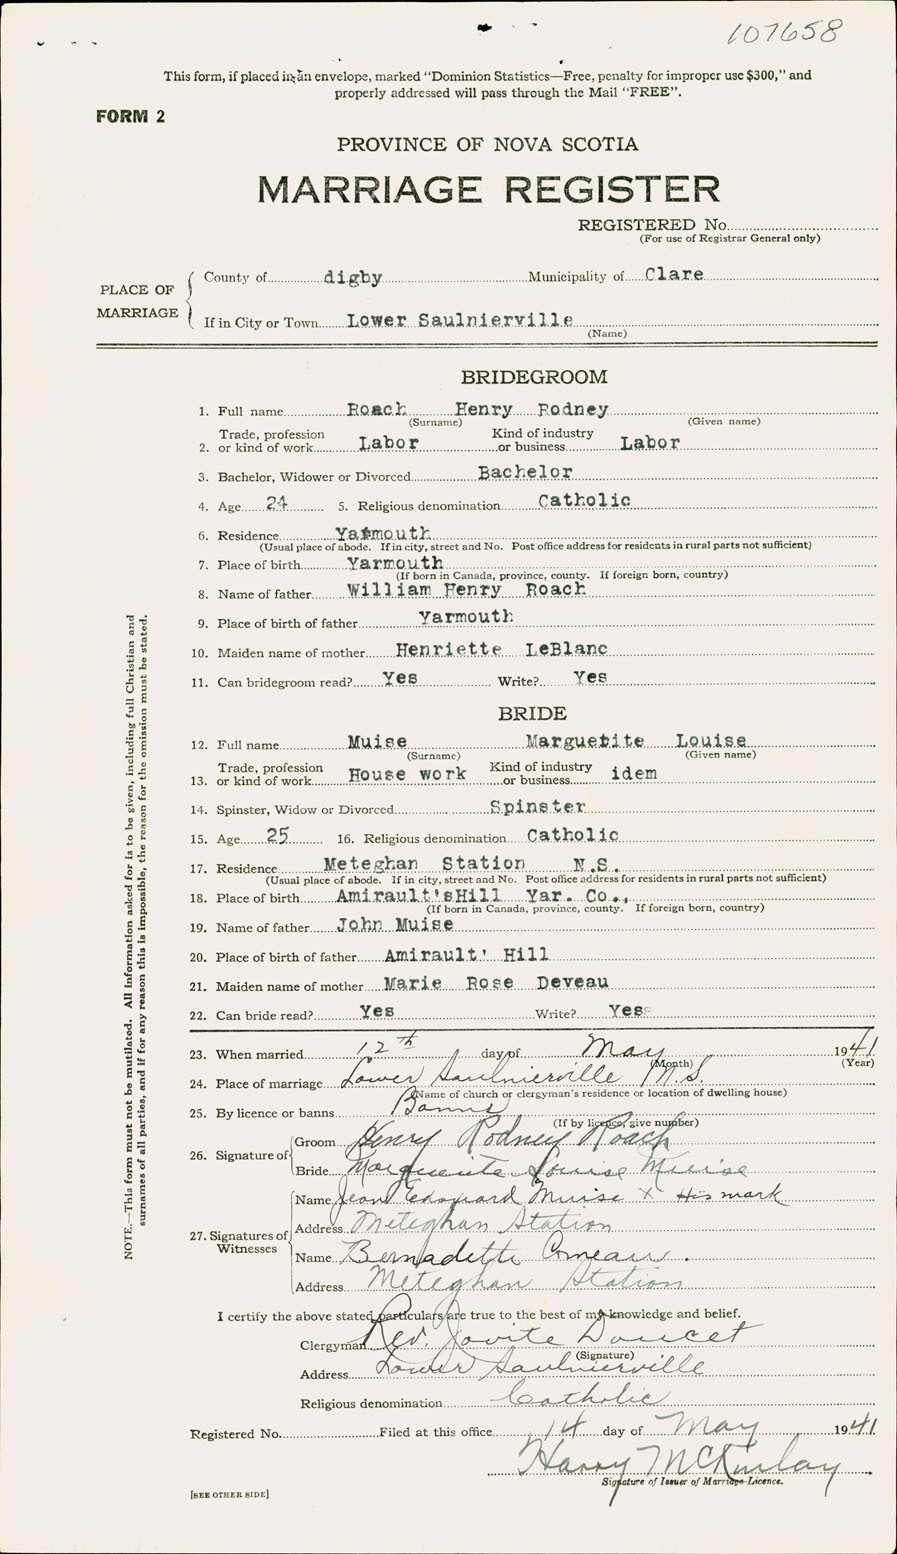 107658
This form, if placed in an envelope, marked "Dominion Statistics—Free, penalty for improper use $300," and
properly addressed will pass through the Mail "FREE".
FORM 2
PROVINCE OF NOVA SCOTIA
MARRIAGE REGISTER
REGISTERED No.
(For use of Registrar General only)
PLACE OF MARRIAGE
County of digby Municipality of Clare
If in City or Town Lower Saulnierville
(Name)
BRIDEGROOM
1. Full name Roach Henry Rodney
(Surname) (Given name)
2. Trade, profession or kind of work Labor Kind of industry or business Labor
3. Bachelor, Widower or Divorced Bachelor
4. Age 24 5. Religious denomination Catholic
6. Residence Yarmouth
(Usual place of abode. If in city, street and No. Post office address for residents in rural parts not sufficient)
7. Place of birth Yarmouth
(If born in Canada, province, county. If foreign born, country)
8. Name of father William Henry Roach
9. Place of birth of father Yarmouth
10. Maiden name of mother Henriette LeBlanc
11. Can bridegroom read? Yes Write? Yes
BRIDE
12. Full name Muise Marguetite Louise
(Surname) (Given name)
13. Trade, profession or kind of work House work Kind of industry or business idem
14. Spinster, Widow or Divorced Spinster
15. Age 25 16. Religious denomination Catholic
17. Residence Meteghan Station N.S.
(Usual place of abode. If in city, street and No. Post office address for residents in rural parts not sufficient)
18. Place of birth Amirault'sHill Yar. Co.,
(If born in Canada, province, county. If foreign born, country)
19. Name of father John Muise
20. Place of birth of father Amirault' Hill
21. Maiden name of mother Marie Rose Deveau
22. Can bride read? Yes Write? Yes
23. When married 12th day of May 1941
(Month) (Year)
24. Place of marriage Lower Saulnierville N.S.
(Name of church or clergyman's residence or location of dwelling house)
25. By licence or banns Banns
(If by licence, give number)
26. Signature of
Groom Henry Rodney Roach
Bride Marguerite Louise Muise
27. Signatures of Witnesses
Name Jean Edouard Muise X His mark
Address Meteghan Station
Name Bernadette Comeau.
Address Meteghan Station
I certify the above stated particulars are true to the best of my knowledge and belief.
Clergyman Rev. Jovite Doucet
(Signature)
Address Lower Saulnierville
Religious denomination Catholic
Registered No. Filed at this office 14 day of May 1941
Harry McKinlay
Signature of Issuer of Marriage Licence.
[SEE OTHER SIDE]
NOTE.—This form must not be mutilated. All information asked for is to be given, including full Christian and
surnames of all parties, and if for any reason this is impossible, the reason for the omission must be stated.